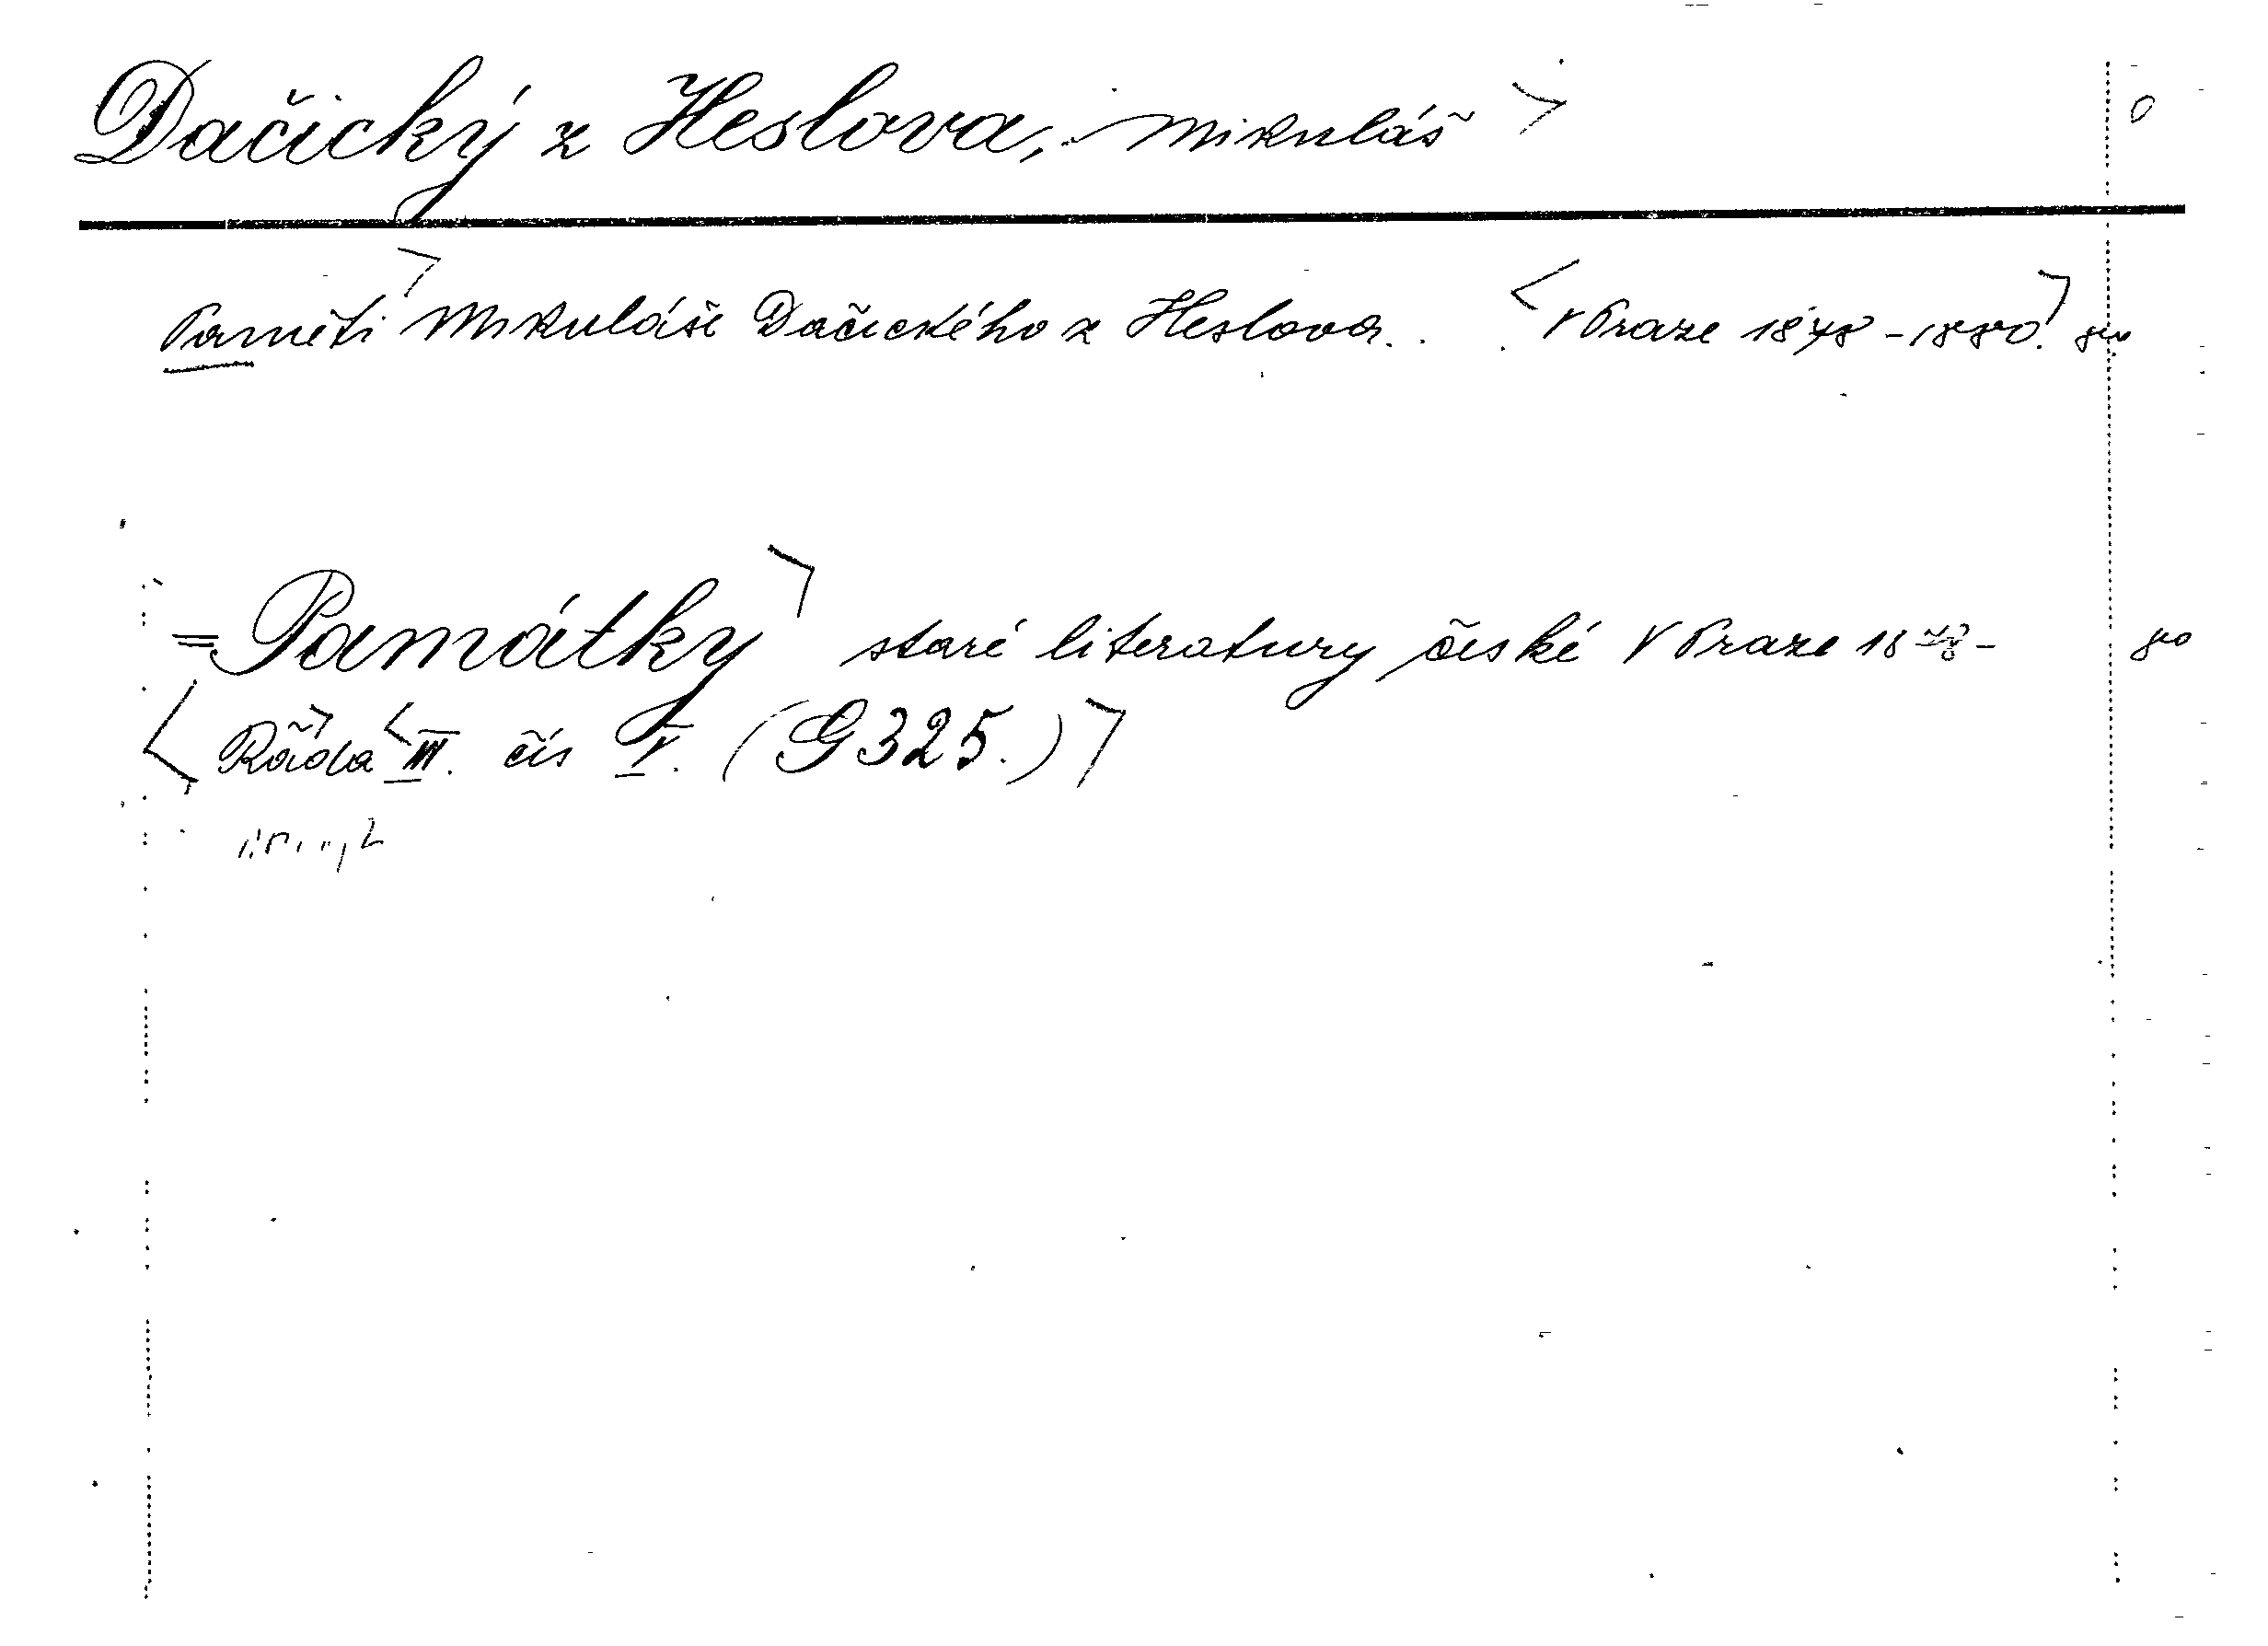 Dačický z Heslova, Mikuláš
Paměti Mikuláše Dačického z Heslova. . . V Praze 1878-1880. 8vo
= Památky staré literatury české V Praze 1878- 80
Řada III. čís V. (G325.)